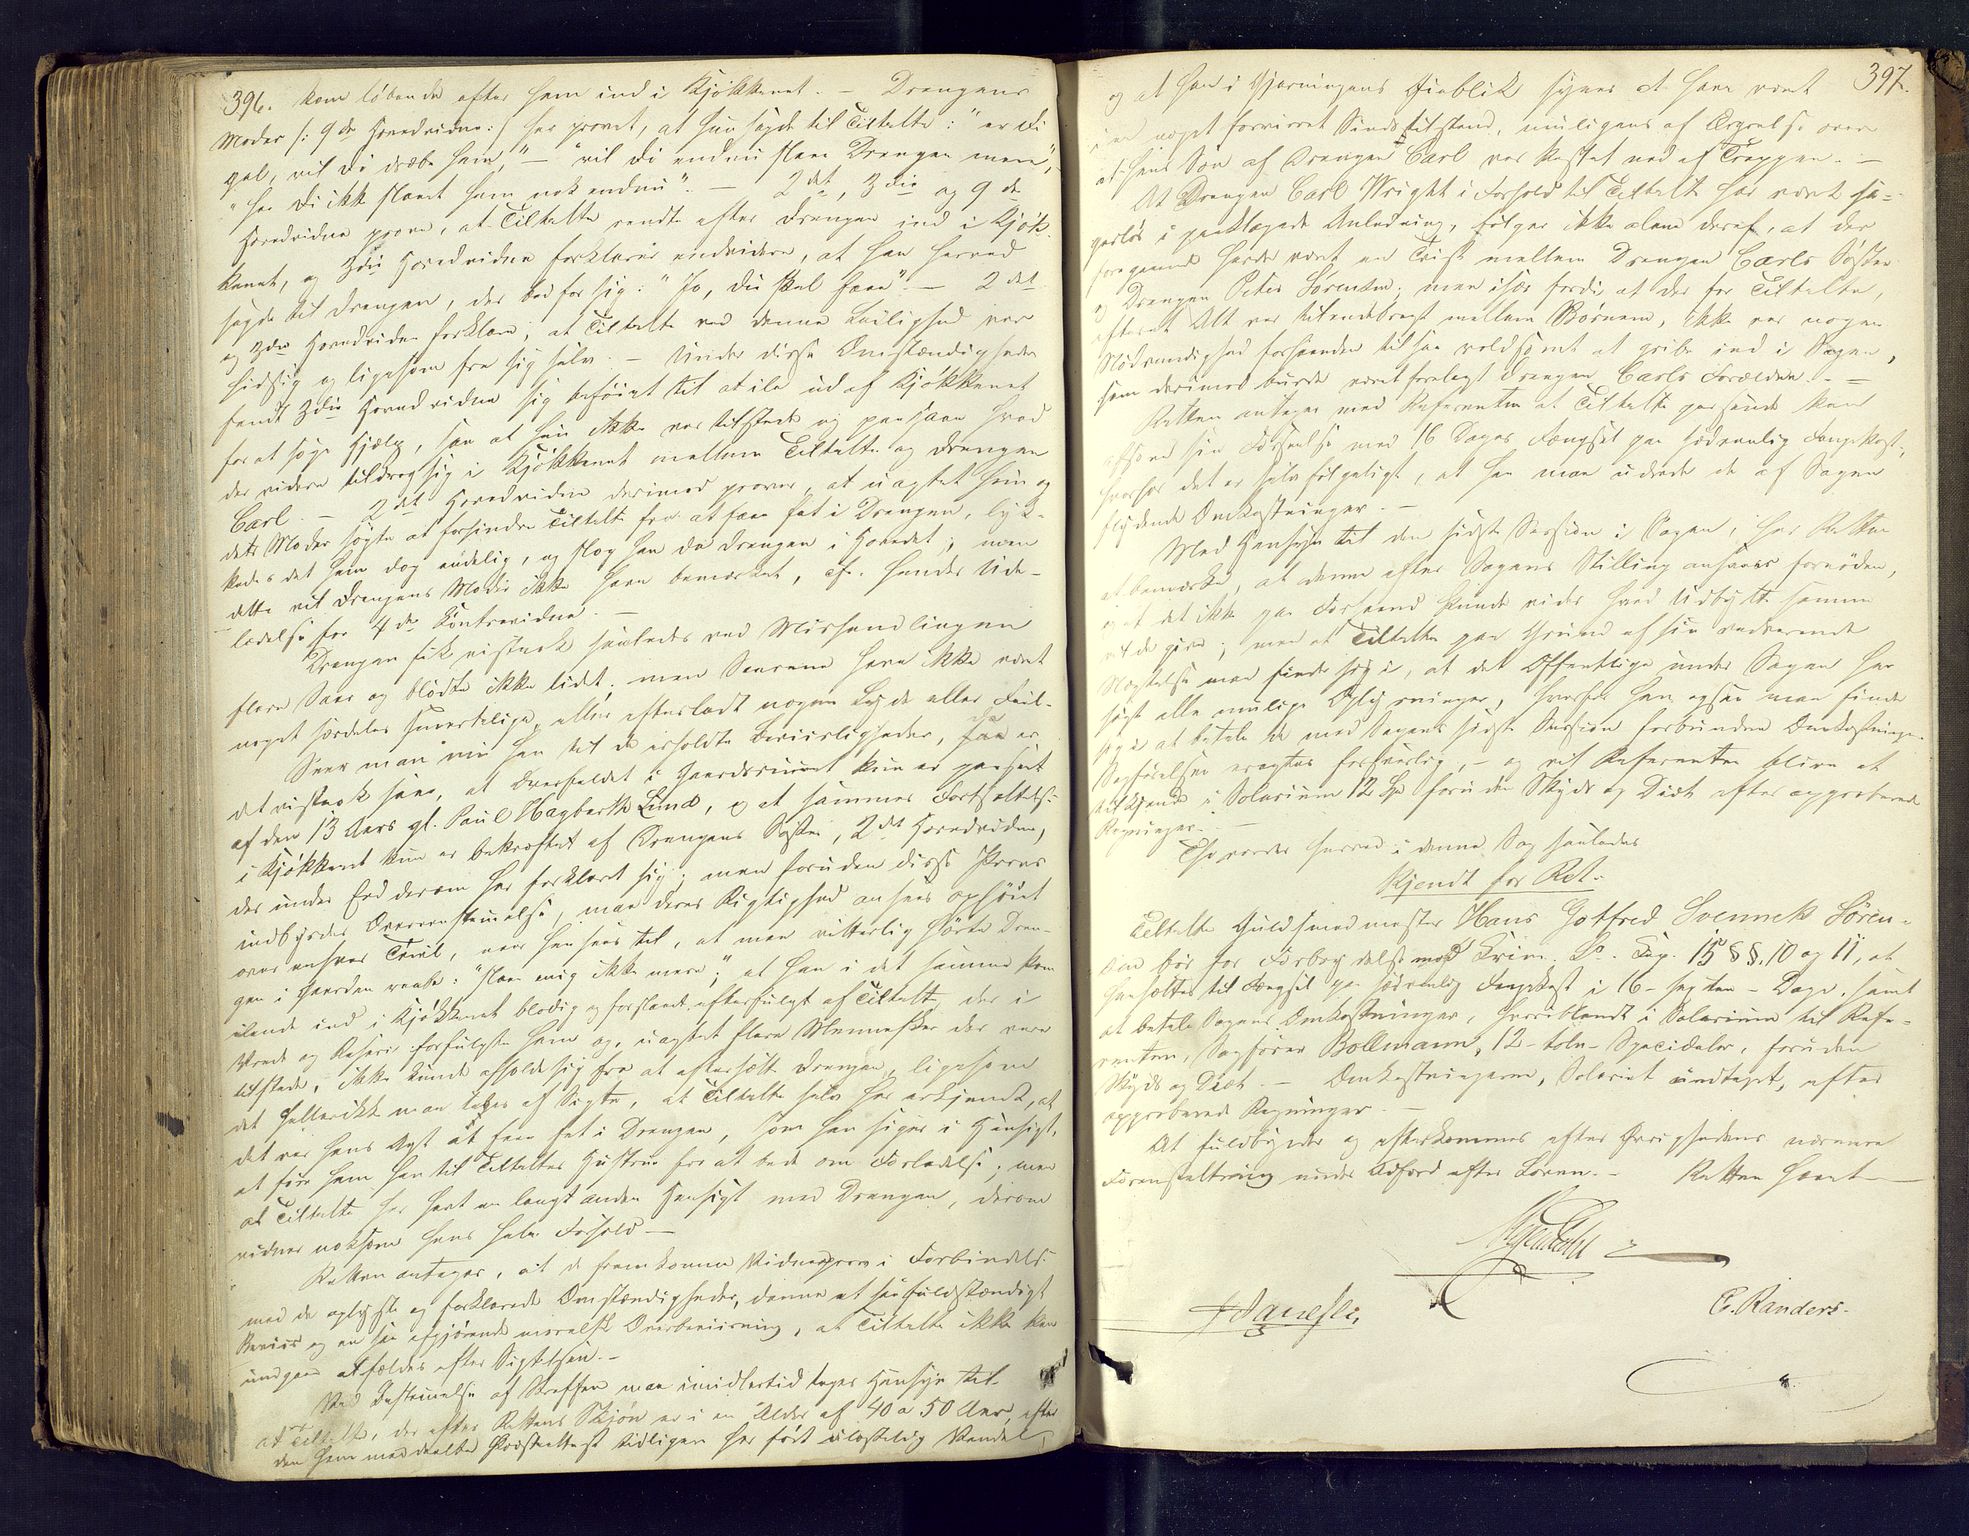 396. kom løbende efter ham ind i Kjøkkenet. – Drengens
Moder /: 9de Hovedvidne :/ har provet, at hun sagde til Tiltalte: "er Di
gal, vil Di dræbe ham," – "vil Di endnu slaae Drengen mere",
"har Di ikke slaaet ham nok endnu". – 2det, 3die og 9de
Hovedvidne prove, at Tiltalte rendte efter Drengen ind i Kjøk-
kenet, og 3die Hovedvidne forklarer endvidere, at han herved
sagde til Drengen, der bad for sig: "Jo, Du skal faae". – 2det
og 3die Hovedvidne forklare, at Tiltalte ved denne Leilighed var
hidsig og ligesom fra sig selv. – Under disse Omstændigheder
fandt 3die Hovedvidne sig beføiet til at ile ud af Kjøkkenet
for at søge Hjælp, saa at hun ikke var tilstede og paasaae hvad
der videre tildrog sig i Kjøkkenet mellem Tiltalte og Drengen
Carl. – 2det Hovedvidne derimod prover, at uagtet hun og
dets Moder søgte at forhindre Tiltalte fra at faae fat i Drengen, lyk-
kedes det ham dog endelig, og slog han da Drengen i Hovedet; men
dette vil Drengens Moder ikke have bemærket, cfr. hendes Ude-
ladelse for 4de Contravidne. –
Drengen fik vistnok saaledes ved Mishandlingen
flere Saar og blødte ikke lidet; men Saarene have ikke været
noget særdeles smertelige, eller efterladt nogen Lyde eller Feil.
Seer man nu hen til de anholdte Beviisligheder, saa er
det vistnok saa, at Overfaldet i Gaardsrummet kun er paaseet
af den 13 Aars gl. Paul Hagbarth Lund, og at sammes Fortsættelse
i Kjøkkenet kun er bekræftet af Drengens Søster, 2det Hovedvidne,
der under Eed derom har forklaret sig; men foruden disse Provs
indbyrdes Overensstemmelse, maa deres Rigtighed ansees ophøiet
over enhver Tvivl, naar hensees til, at man vitterlig hørte Dren-
gen i Gaarden raabe: "slaae mig ikke mere"; at han i det samme kom
ilende ind i Kjøkkenet blodig og forslaaet efterfulgt af Tiltalte, der i
Vrede og Raseri forfulgte ham og, uagtet flere Mennesker der vare
tilstede, ikke kunde afholde sig fra at eftersætte Drengen, ligesom
det heller ikke maa tabes af Sigte, at Tiltalte selv har erkjendt, at
det var hans Agt at faae fat i Drengen, som han siger i Hensigt,
at føre ham hen til Tiltaltes Hustrue for at bede om Forladelse; men
at Tiltalte har havt en langt anden Hensigt med Drengen, derom
vidner noksom hans hele Forhold –
Retten antager, at de fremkomne Vidneprov i Forbindelse
med de oplyste og forklarede Omstændigheder, danne et saa fuldstændigt
Beviis og en saa afgjørende moralsk Overbeviisning, at Tiltalte ikke kan
undgaae at fældes efter Sigtelsen. –
Ved Bestemmelse af Straffen maa imidlertid tages Hensyn til
at Tiltalte, der efter Rettens Skjøn er i en Alder af 40 a 50 Aar, efter
den ham meddeelte Præsteattest tidligere har ført ulastelig Vandel,
397.
og at han i Gjerningens Øieblik synes at have været
i en noget forvirret Sindstilstand, muligens af Ærgrelse over
at hans Søn af Drengen Carl var kastet ned af Trappen. –
At Drengen Carl Wright i Forhold til Tiltalte har været sa-
gesløs i paaklagede Anledning, følger ikke alene deraf, at der
foregaaende havde været en Tvist mellem Drengen Carls Søster
og Drengen Peter Sørensen; men især fordi at der for Tiltalte,
efterat Alt var tilendebragt mellem Børnene, ikke var nogen
Nødvendighed forhaanden til saa voldsomt at gribe ind i Sagen,
som derimod burde været forelagt Drengen Carls Forældre. –
Retten antager med Referenten at Tiltalte passende kan
afsone sin Forseelse med 16 Dages Fængsel paa sædvanlig Fangekost,
hvorhos det er selvfølgeligt, at han maa udrede de af Sagen
flydende Omkostninger. –
Med Hensyn til den sidste Session i Sagen, har Retten
at bemærke, at denne efter Sagens Stilling ansaaes fornøden,
og at det ikke paa Forhaand kunde vides hvad Udbytte samme
vilde give; men at Tiltalte paa Grund af sin vedvarende
Nægtelse maa finde sig i, at det Offentlige under Sagen har
søgt alle mulige Oplysninger, hvorfor han ogsaa maa finde
sig i at betale de med Sagens sidste Session forbundne Omkostninger.
Sagførelsen eragtes forsvarlig, – og vil Referenten blive at
tilkjende i Salarium 12 Spd foruden Skyds og Diæt efter approberede
Regninger. –
Thi vorder herved i denne Sag saaledes
Kjendt for Ret:
Tiltalte Guldsmedmester Hans Gotfred Svennek Søren-
sen bør for Forbrydelse mod Crim. L. Cap. 15 §§. 10 og 11, at
hensættes til Fængsel paa sædvanlig Fangekost i 16 – sexten – Dage, samt
at betale Sagens Omkostninger, heriblandt i Salarium til Refe-
renten, Sagfører Bollmann, 12 – tolv – Speciedaler, foruden
Skyds og Diæt. – Omkostningerne, Salariet undtaget, efter
approberede Regninger. –
At fuldbyrdes og efterkommes efter Øvrighedens nærmere
Foranstaltning under Adfærd efter Loven. – Retten hævet
C. Randers.